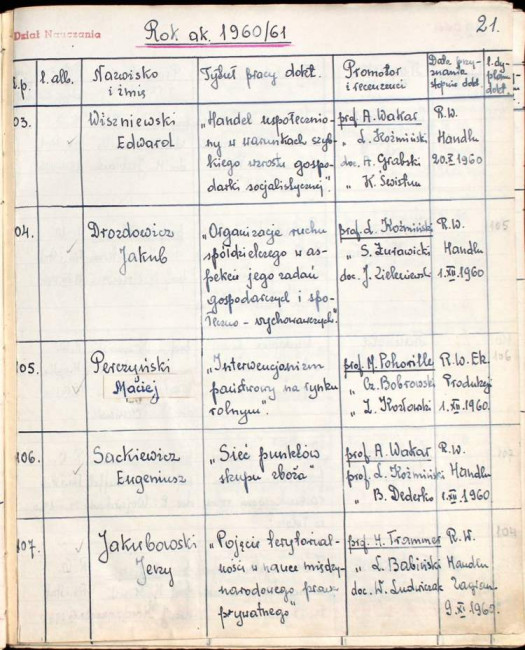 Dział Nauczania
Rok ak. 1960/61
21.
l.p.
l. alb.
Nazwisko
i imię
Tytuł pracy dokt.
Promotor
i recenzenci
Data przy-
znania
stopnia dokt.
l. dy-
plomu
dokt.
03.
Wiszniewski
Edward
„Handel uspołecznio-
ny w warunkach szyb-
kiego wzrostu gospo-
darki socjalistycznej".
prof. A. Wakar
„ L. Koźmiński
doc. A. Grabski
„ K.
R.W.
Handlu
20.X.1960
04.
Drozdowicz
Jakub
„Organizacje ruchu
spółdzielczego w as-
pekcie jego zadań
gospodarczych i spo-
łeczno-wychowawczych".
prof. L. Koźmiński
„ S. Żurawicki
doc. J.
R.W.
Handlu
1.XII.1960
105
105.
Perczyński
Maciej
„Interwencjonizm
państwowy na rynku
rolnym".
prof. M. Pohorille
„ Cz. Bobrowski
„ L. Kozłowski
R.W. Ek.
Produkcji
1.XII.1960.
106
106.
Sackiewicz
Eugeniusz
„Sieć punktów
skupu zboża"
prof. A. Wakar
prof. L. Koźmiński
„ B. Dederko
R.W.
Handlu
1.XII.1960.
107.
Jakubowski
Jerzy
„Pojęcie terytorial-
ności w nauce między-
narodowego prawa
prywatnego"
prof. H. Trammer
„ L. Babiński
doc. W. Ludwiczak
R.W.
Handlu
Zagran.
9.XI.1960.